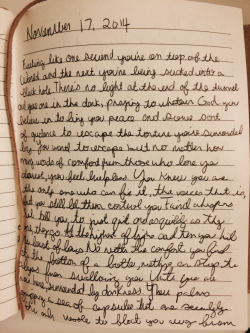 November 17, 2014
Feeling like one second you're on top of the
world and the next you're being sucked into a
black hole. There's no light at the end of the tunnel
and you are in the dark, praying to whatever God you
believe in to bring you peace and some sort
of guidance to escape the torture you're surrounded
by. You want to escape but no matter how
many words of comfort from those who love you
dearest, you feel helpless. You know you are
the only one who can fix it, the voices that is,
but you still let them control you and whispers
that tell you to just quit as quickly as they
the height of lights and tempos high
the beat of bass. No with the comfort you find
the bottom of a bottle, nothing can stop the
from swallowing you. Until you are
now here, surrounded by darkness. Then
popping a sea of capsules that are
the only to blast you away from